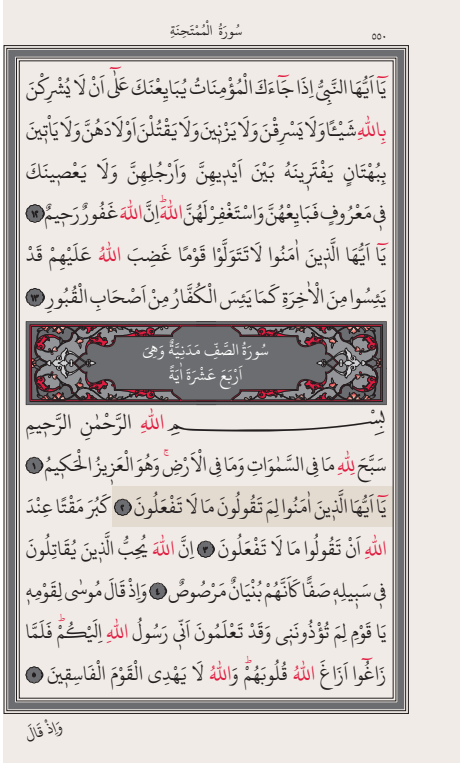 سُورَةُ الْمُمْتَحِنَةِ ٥٥٠
يَٓا اَيُّهَا النَّبِيُّ اِذَا جَٓاءَكَ الْمُؤْمِنَاتُ يُبَايِعْنَكَ عَلٰٓى اَنْ لَا يُشْرِكْنَ
بِاللّٰهِ شَيْـًٔا وَلَا يَسْرِقْنَ وَلَا يَزْنٖينَ وَلَا يَقْتُلْنَ اَوْلَادَهُنَّ وَلَا يَاْتٖينَ
بِبُهْتَانٍ يَفْتَرٖينَهُ بَيْنَ اَيْدٖيهِنَّ وَاَرْجُلِهِنَّ وَلَا يَعْصٖينَكَ
فٖى مَعْرُوفٍ فَبَايِعْهُنَّ وَاسْتَغْفِرْ لَهُنَّ اللّٰهَؕ اِنَّ اللّٰهَ غَفُورٌ رَحٖيمٌ ﴿١٢﴾
يَٓا اَيُّهَا الَّذٖينَ اٰمَنُوا لَا تَتَوَلَّوْا قَوْمًا غَضِبَ اللّٰهُ عَلَيْهِمْ قَدْ
يَئِسُوا مِنَ الْاٰخِرَةِ كَمَا يَئِسَ الْكُفَّارُ مِنْ اَصْحَابِ الْقُبُورِ ﴿١٣﴾
سُورَةُ الصَّفِّ مَدَنِيَّةٌ وَهِىَ
اَرْبَعَ عَشْرَةَ اٰيَةً
بِسْمِ اللّٰهِ الرَّحْمٰنِ الرَّحٖيمِ
سَبَّحَ لِلّٰهِ مَا فِى السَّمٰوَاتِ وَمَا فِى الْاَرْضِۚ وَهُوَ الْعَزٖيزُ الْحَكٖيمُ ﴿١﴾
يَٓا اَيُّهَا الَّذٖينَ اٰمَنُوا لِمَ تَقُولُونَ مَا لَا تَفْعَلُونَ ﴿٢﴾ كَبُرَ مَقْتًا عِنْدَ
اللّٰهِ اَنْ تَقُولُوا مَا لَا تَفْعَلُونَ ﴿٣﴾ اِنَّ اللّٰهَ يُحِبُّ الَّذٖينَ يُقَاتِلُونَ
فٖى سَبٖيلِهٖ صَفًّا كَاَنَّهُمْ بُنْيَانٌ مَرْصُوصٌ ﴿٤﴾ وَاِذْ قَالَ مُوسٰى لِقَوْمِهٖ
يَا قَوْمِ لِمَ تُؤْذُونَنٖى وَقَدْ تَعْلَمُونَ اَنّٖى رَسُولُ اللّٰهِ اِلَيْكُمْؕ فَلَمَّا
زَاغُٓوا اَزَاغَ اللّٰهُ قُلُوبَهُمْؕ وَاللّٰهُ لَا يَهْدِى الْقَوْمَ الْفَاسِقٖينَ ﴿٥﴾
وَاِذْ قَالَ